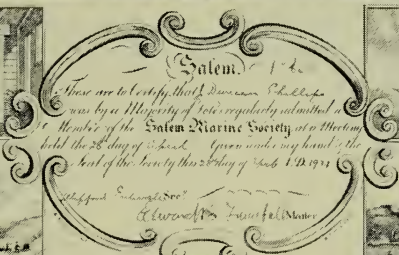 Salem,
These are to Certify that J. Duncan Phillips
was by a Majority of Votes regularly admitted a
Member of the Salem Marine Society at a Meeting
held the 28 day of April Given under my hand & the
Seal of the Society this 28 day of April A.D. 1921
Master